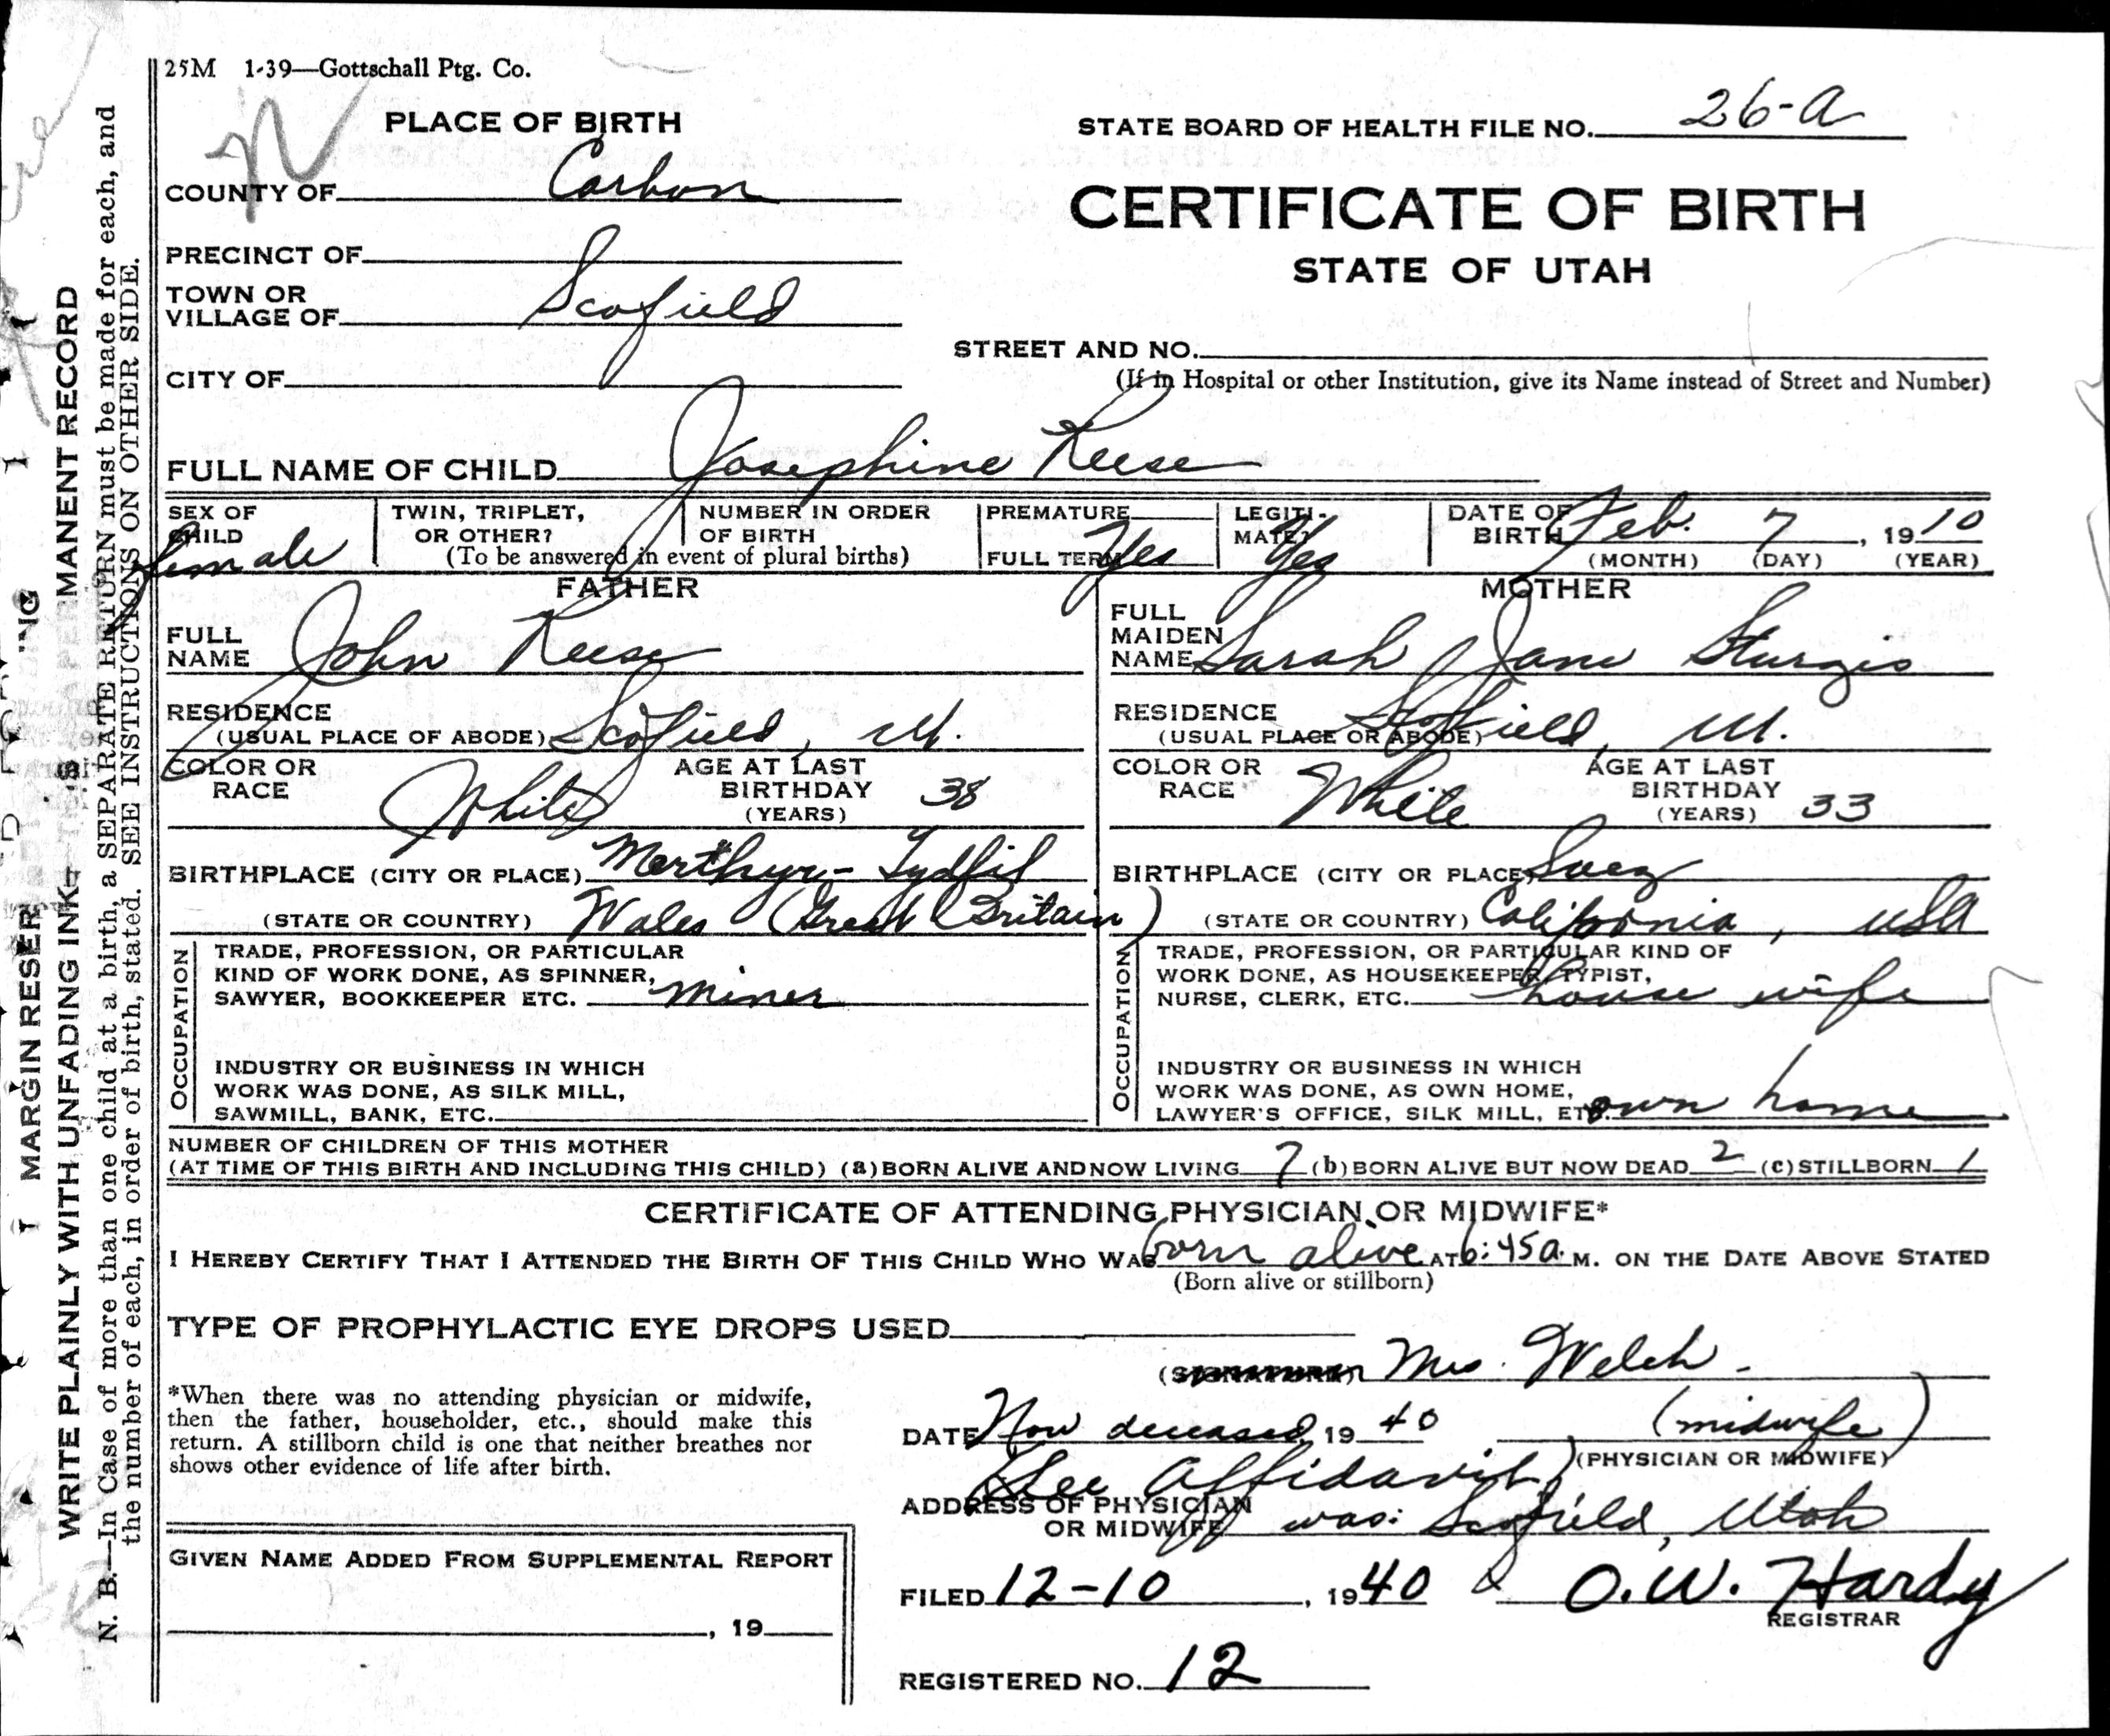 25M 1-39—Gottschall Ptg. Co.
PLACE OF BIRTH
STATE BOARD OF HEALTH FILE NO. 26-a
COUNTY OF Carbon
CERTIFICATE OF BIRTH
STATE OF UTAH
PRECINCT OF
TOWN OR
VILLAGE OF Scofield
STREET AND NO.
CITY OF
(If in Hospital or other Institution, give its Name instead of Street and Number)
FULL NAME OF CHILD Josephine Reese
SEX OF CHILD female
TWIN, TRIPLET, OR OTHER?
NUMBER IN ORDER OF BIRTH
(To be answered in event of plural births)
PREMATURE
FULL TERM Yes
LEGITI-MATE? Yes
DATE OF BIRTH Feb. 7, 1910
(MONTH) (DAY) (YEAR)
FATHER
FULL NAME John Reese
RESIDENCE
(USUAL PLACE OF ABODE) Scofield, Ut.
COLOR OR RACE White
AGE AT LAST BIRTHDAY (YEARS) 38
BIRTHPLACE (CITY OR PLACE) Merthyr-Tydfil
(STATE OR COUNTRY) Wales (Great Britain)
OCCUPATION
TRADE, PROFESSION, OR PARTICULAR
KIND OF WORK DONE, AS SPINNER,
SAWYER, BOOKKEEPER ETC. miner
INDUSTRY OR BUSINESS IN WHICH
WORK WAS DONE, AS SILK MILL,
SAWMILL, BANK, ETC.
MOTHER
FULL MAIDEN NAME Sarah Jane Sturgis
RESIDENCE
(USUAL PLACE OR ABODE) Scofield, Ut.
COLOR OR RACE White
AGE AT LAST BIRTHDAY (YEARS) 33
BIRTHPLACE (CITY OR PLACE) Suez
(STATE OR COUNTRY) California, USA
OCCUPATION
TRADE, PROFESSION, OR PARTICULAR KIND OF
WORK DONE, AS HOUSEKEEPER, TYPIST,
NURSE, CLERK, ETC. house wife
INDUSTRY OR BUSINESS IN WHICH
WORK WAS DONE, AS OWN HOME,
LAWYER'S OFFICE, SILK MILL, ETC. own home
NUMBER OF CHILDREN OF THIS MOTHER
(AT TIME OF THIS BIRTH AND INCLUDING THIS CHILD) (a) BORN ALIVE AND NOW LIVING 7 (b) BORN ALIVE BUT NOW DEAD 2 (c) STILLBORN 1
CERTIFICATE OF ATTENDING PHYSICIAN OR MIDWIFE*
I HEREBY CERTIFY THAT I ATTENDED THE BIRTH OF THIS CHILD WHO WAS born alive AT 6:45 a. M. ON THE DATE ABOVE STATED
(Born alive or stillborn)
TYPE OF PROPHYLACTIC EYE DROPS USED
(SIGNATURE) Mrs. Welch
*When there was no attending physician or midwife,
then the father, householder, etc., should make this
return. A stillborn child is one that neither breathes nor
shows other evidence of life after birth.
DATE Now deceased, 1940 (midwife)
(PHYSICIAN OR MIDWIFE)
(See Affidavit)
ADDRESS OF PHYSICIAN
OR MIDWIFE was: Scofield, Utah
GIVEN NAME ADDED FROM SUPPLEMENTAL REPORT
, 19
FILED 12-10, 1940 O. W. Hardy
REGISTRAR
REGISTERED NO. 12
MARGIN RESER
WRITE PLAINLY WITH UNFADING INK— S MANENT RECORD
N. B.—In Case of more than one child at a birth, a SEPARATE RETURN must be made for each, and
the number of each, in order of birth, stated. SEE INSTRUCTIONS ON OTHER SIDE.